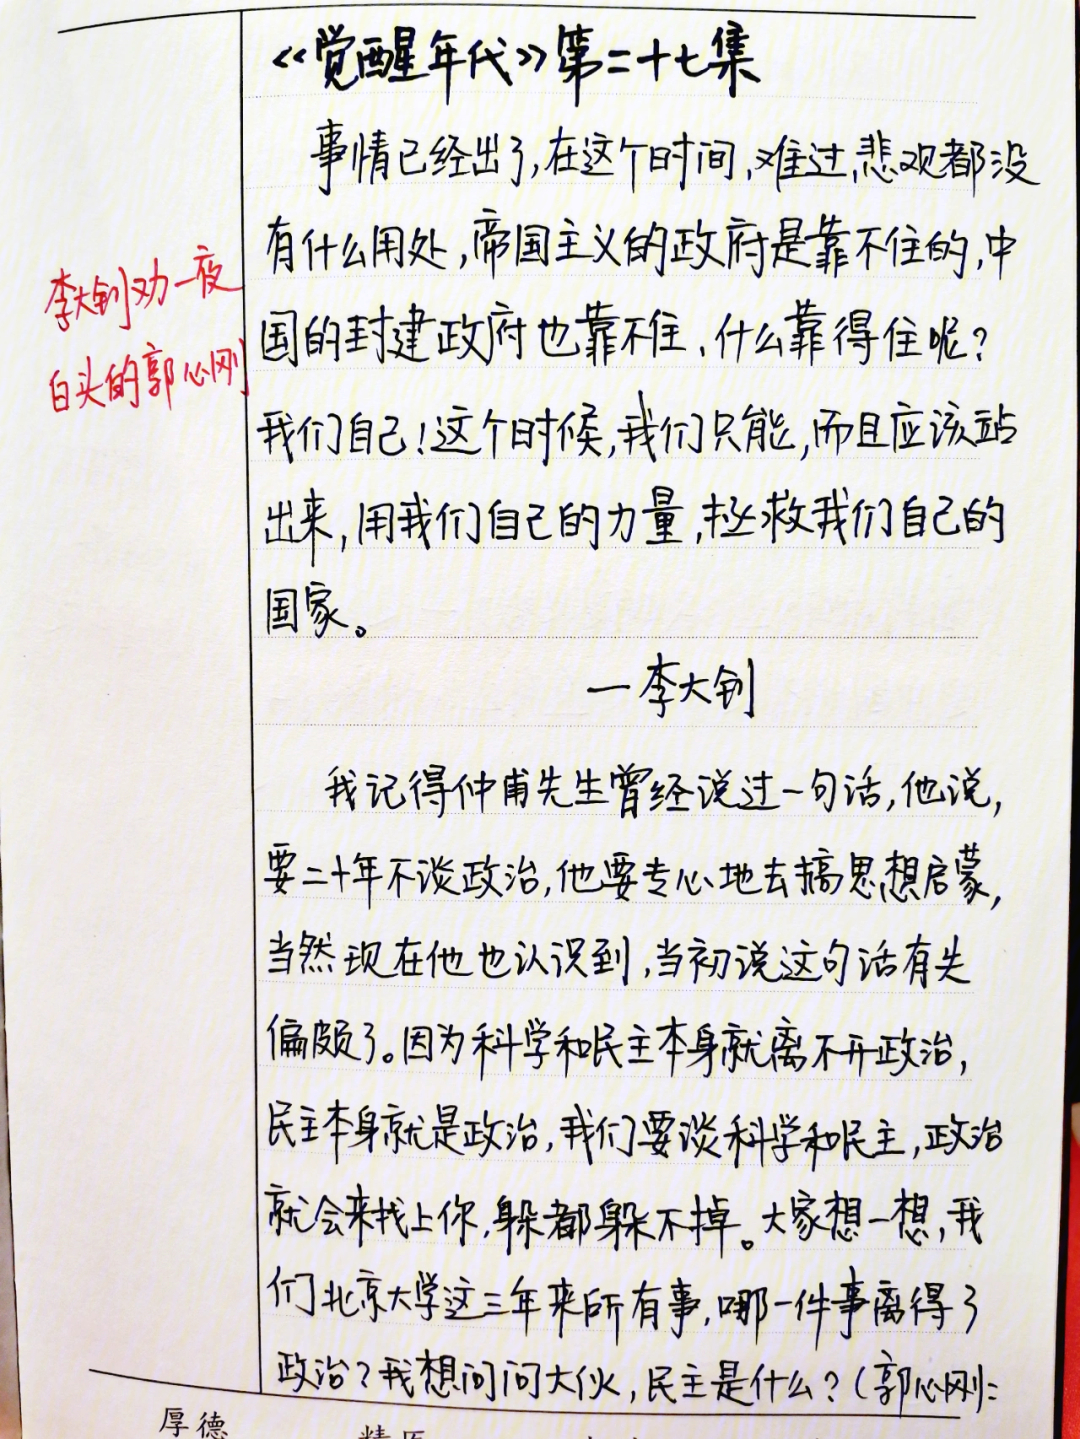 《觉醒年代》第二十七集
事情已经出了,在这个时间,难过,悲观都没
有什么用处,帝国主义的政府是靠不住的,中
国的封建政府也靠不住、什么靠得住呢?
我们自己!这个时候,我们只能,而且应该站
出来,用我们自己的力量,拯救我们自己的
国家。
—李大钊
李大钊劝一夜
白头的郭心刚
我记得仲甫先生曾经说过一句话,他说,
要二十年不谈政治,他要专心地去搞思想启蒙,
当然现在他也认识到,当初说这句话有失
偏颇了。因为科学和民主本身就离不开政治,
民主本身就是政治,我们要谈科学和民主,政治
就会来找上你,躲都躲不掉。大家想一想,我
们北京大学这三年来所有事,哪一件事离得了
政治?我想问问大伙,民主是什么?(郭心刚:
厚德